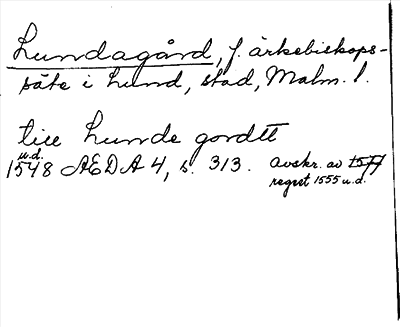 Lundagård, f. ärkebiskops-
säte i Lund, stad, Malm. l.
till Lunde gordtt
u.d.
1548 AEDA 4, s. 313. avskr. av 1577
regist 1555 u.d.